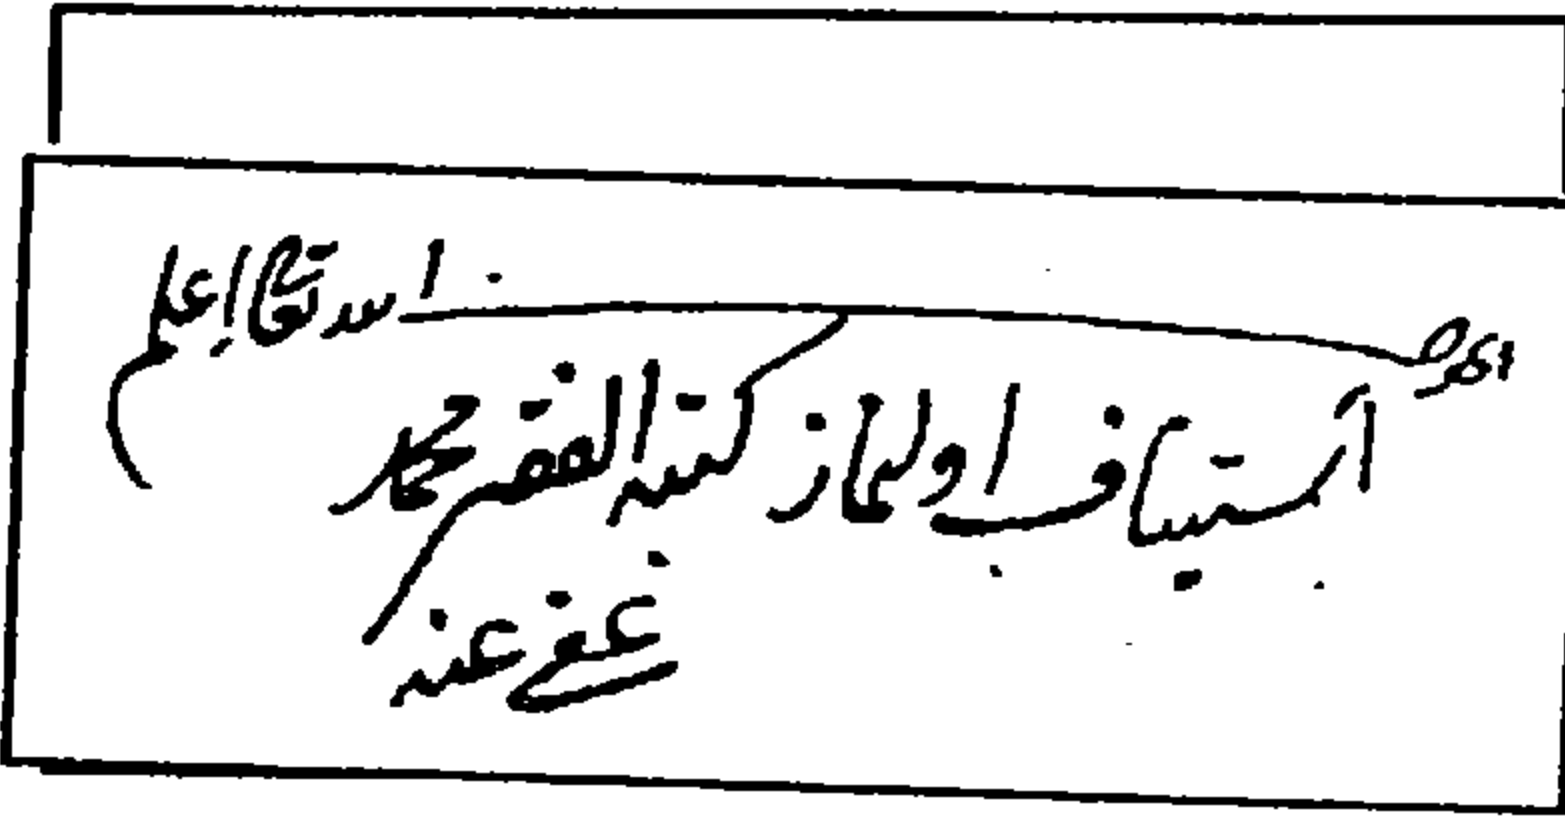 الله تعالى اعلم
استيناف اولنماز كتبه الفقير محمد
عفى عنه